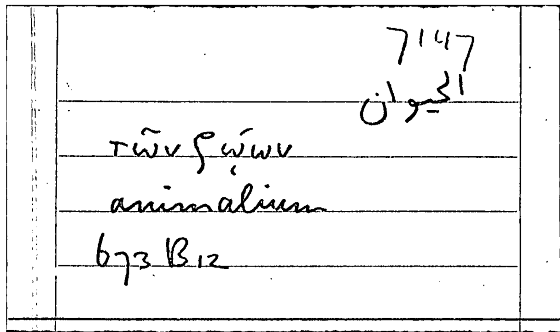 7147
الحيوان
τῶν ζῴων
animalium
673 B12